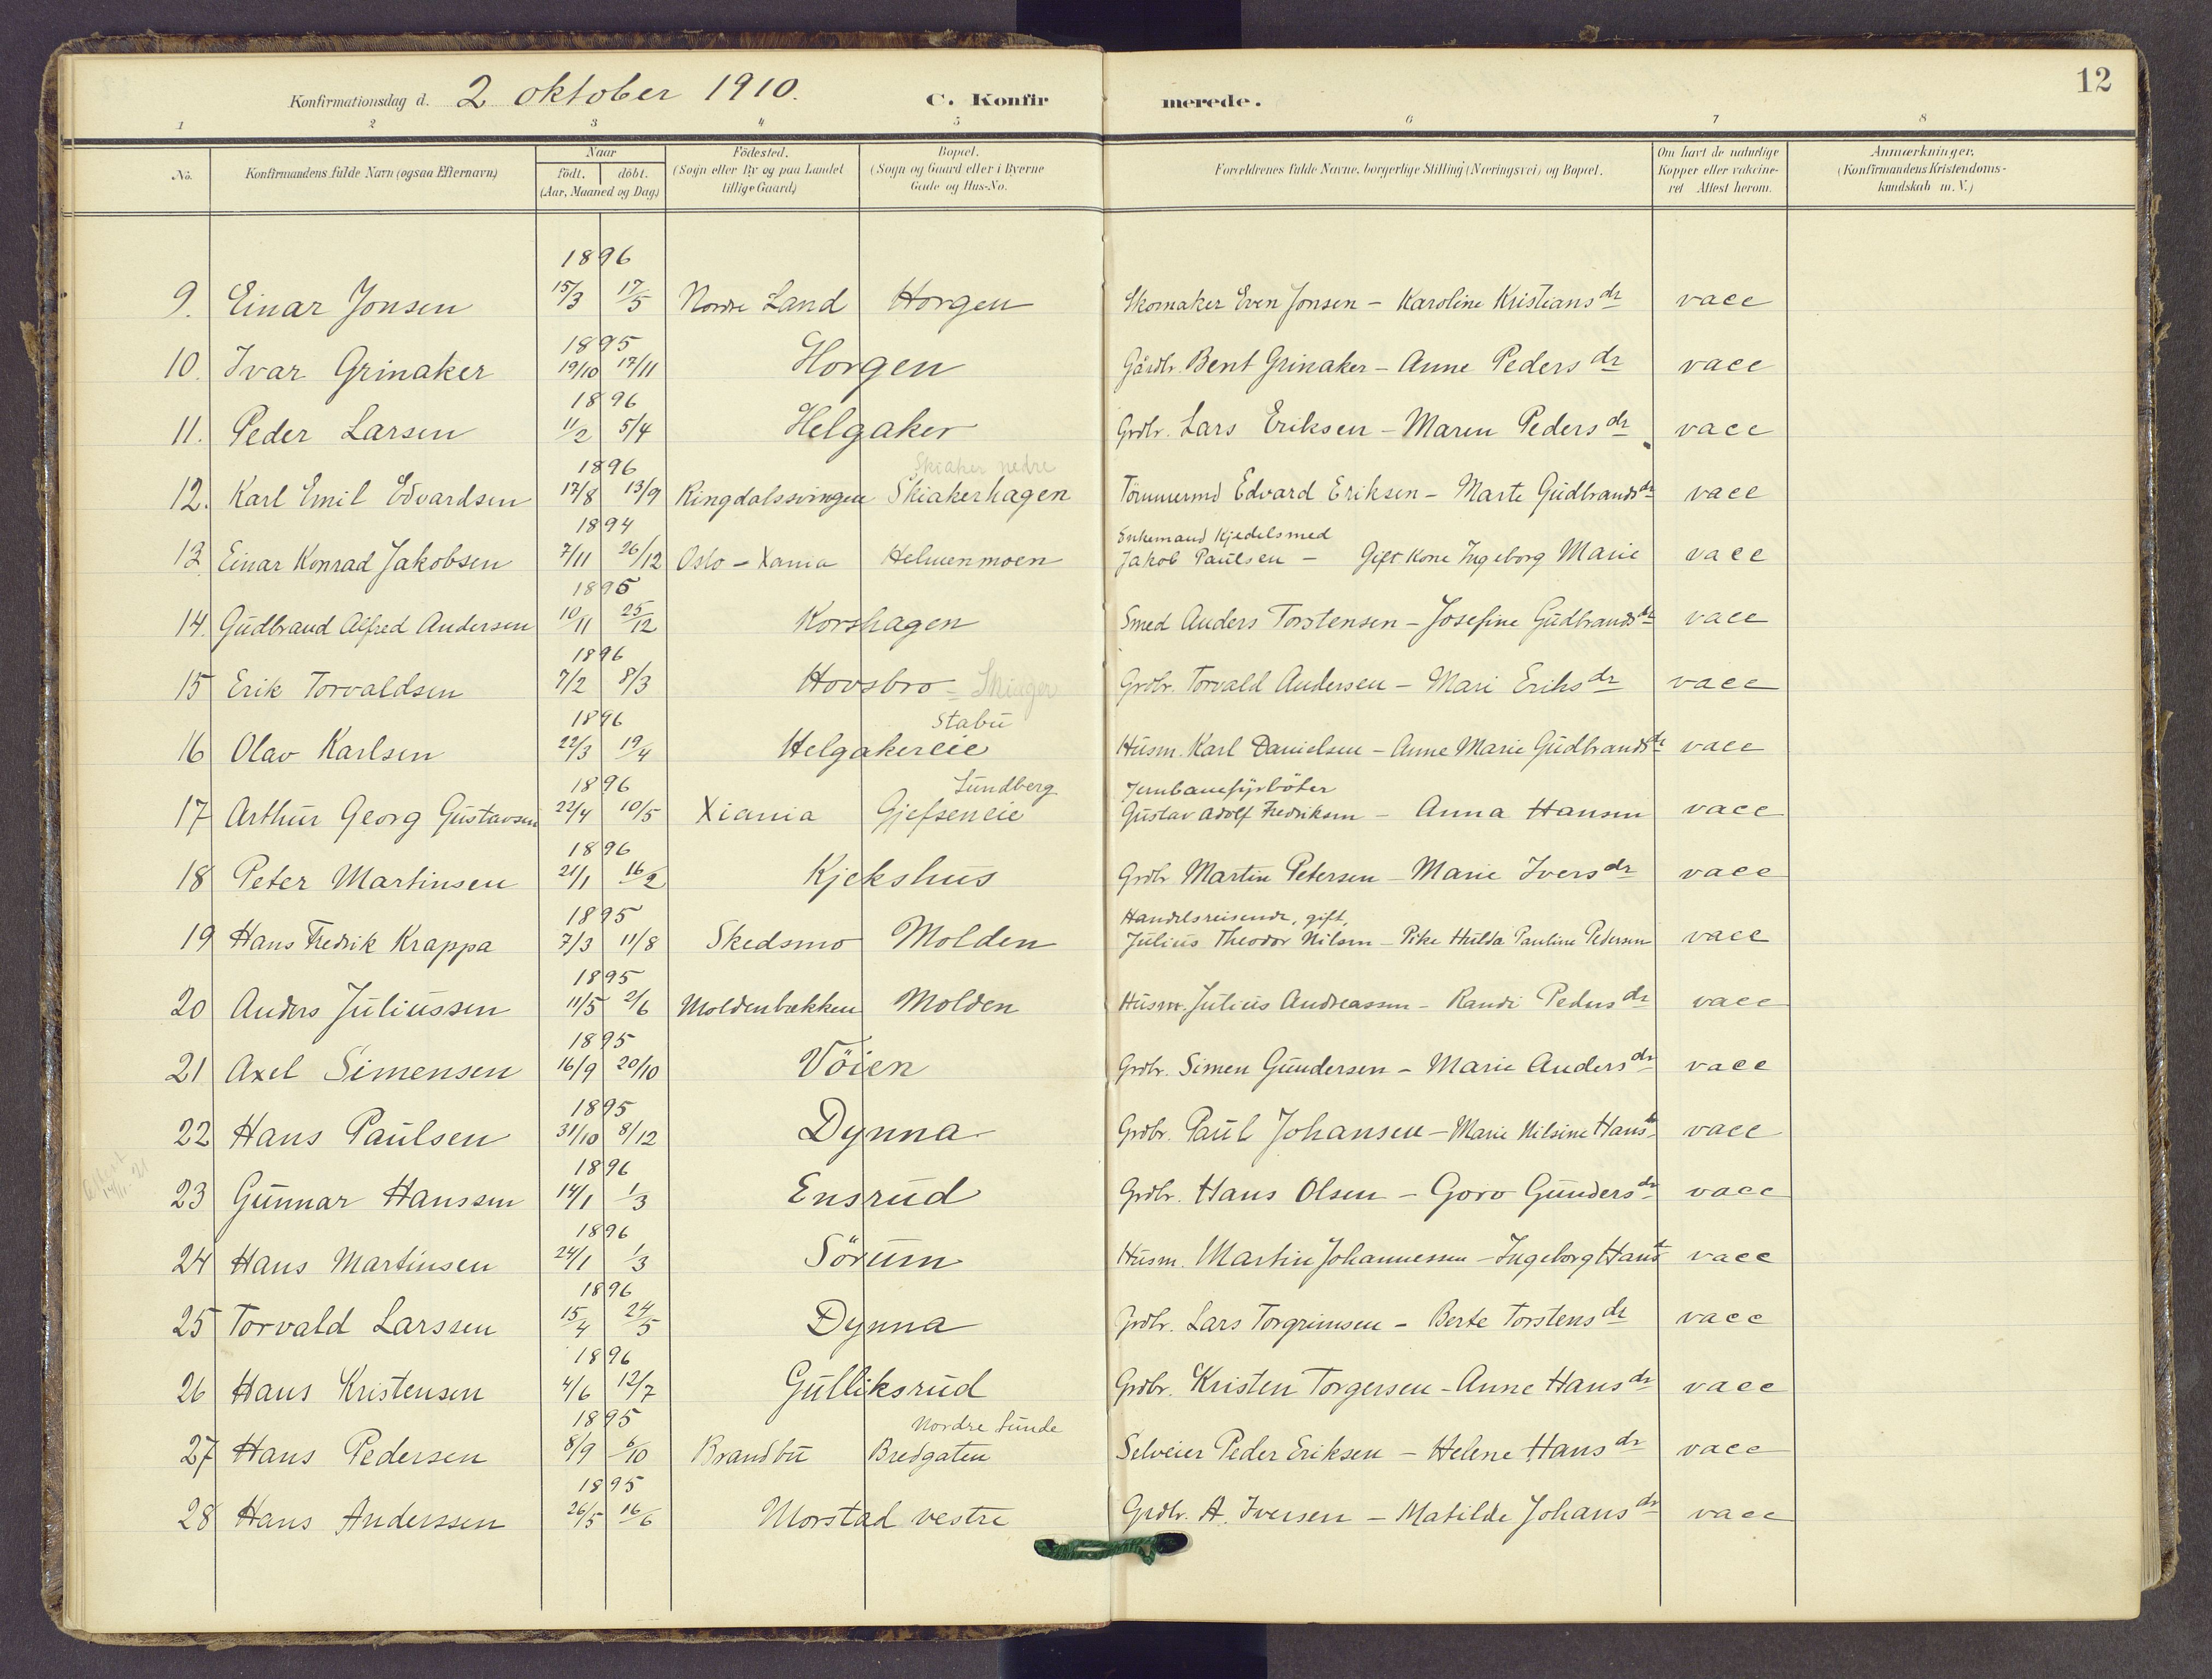 12
Konfirmationsdag d. 2 oktober 1910. C. Konfir merede.
1 2 3 4 5 6 7 8
No. Konfirmandens fulde Navn (ogsaa Efternavn) Naar födt. döbt. (Aar, Maaned og Dag) Födested. (Sogn eller By og paa Landet tillige Gaard) Bopæl. (Sogn og Gaard eller i Byerne Gade og Hus-No. Forældrenes fulde Navne, borgerlige Stilling (Næringsvei) og Bopæl. Om havt de naturlige Kopper eller vakcineret Attest herom. Anmærkninger. (Konfirmandens Kristendomskundskab m. V.)
1896
9. Einar Jonsen 15/3 17/5 Nordre Land Horgen Skomaker Even Jonsen - Karoline Kristiansdr vacc
1895
10. Ivar Grinaker 19/10 17/11 Horgen Gårdbr. Bent Grinaker - Anne Pedersdr vacc
1896
11. Peder Larsen 11/2 5/4 Helgaker Grdbr. Lars Eriksen - Maren Pedersdr vacc
1896 Skiaker nedre
12. Karl Emil Edvardsen 17/8 13/9 Ringdalssvingen Skiakerhagen Tömmermd Edvard Eriksen - Marte Gudbrandsdr vacc
1894 Enkemand Kjedelsmed
13 Einar Konrad Jakobsen 7/11 26/12 Oslo - Xania Helmenmoen Jakob Paulsen - Gift Kone Ingeborg Marie vacc
1895
14. Gudbrand Alfred Andersen 10/11 25/12 Korshagen Smed Anders Torstensen - Josefine Gudbrandsdr vacc
1896
15 Erik Torvaldsen 7/2 8/3 Hovsbro - Grdbr. Torvald Andersen - Mari Eriksdr vacc
1896 Stabu
16 Olav Karlsen 22/3 19/4 Helgakereie Husm. Karl Danielsen - Anne Marie Gudbrandsdr vacc
1896 Sundberg Jernbanefyrböter
17 Arthur Georg Gustavsen 22/4 10/5 Xiania Gjefseneie Gustav Adolf Fredriksen - Anna Hansen vacc
1896
18 Peter Martinsen 21/1 16/2 Kjekshus Grdbr Martin Petersen - Marie Iversdr vacc
1895 Handelsreisende, gift,
19 Hans Fredrik Krappa 7/3 11/8 Skedsmo Molden Julius Theodor Nilsen - Pike Hulda Pauline Pedersen vacc
1895
20 Anders Juliussen 11/5 2/6 Moldenbækken Molden Husm. Julius Andreassen - Randi Pedersdr vacc
1895
21 Axel Simensen 16/9 20/10 Vöien Grdbr. Simen Gundersen - Marie Andersdr vacc
1895
22 Hans Paulsen 31/10 8/12 Dynna Grdbr. Paul Johansen - Marie Nilsine Hansdr vacc
1896
23 Gunnar Hanssen 14/1 1/3 Ensrud Grdbr. Hans Olsen - Goro Gundersdr vacc
1896
24 Hans Martinsen 24/1 1/3 Sörum Husm. Martin Johannessen - Ingeborg Hansdr vacc
1896
25 Torvald Larssen 15/4 24/5 Dynna Grdbr. Lars Torgrimsen - Berte Torstensdr vacc
1896
26 Hans Kristensen 4/6 12/7 Gulliksrud Grdbr. Kristen Torgersen - Anne Hansdr vacc
1895 Nordre Lunde
27 Hans Pedersen 8/9 6/10 Brandbu Bredgaten Selveier Peder Eriksen - Helene Hansdr vacc
1895
28 Hans Anderssen 26/5 16/6 Morstad vestre Grdbr. A. Iversen - Matilde Johansdr vacc